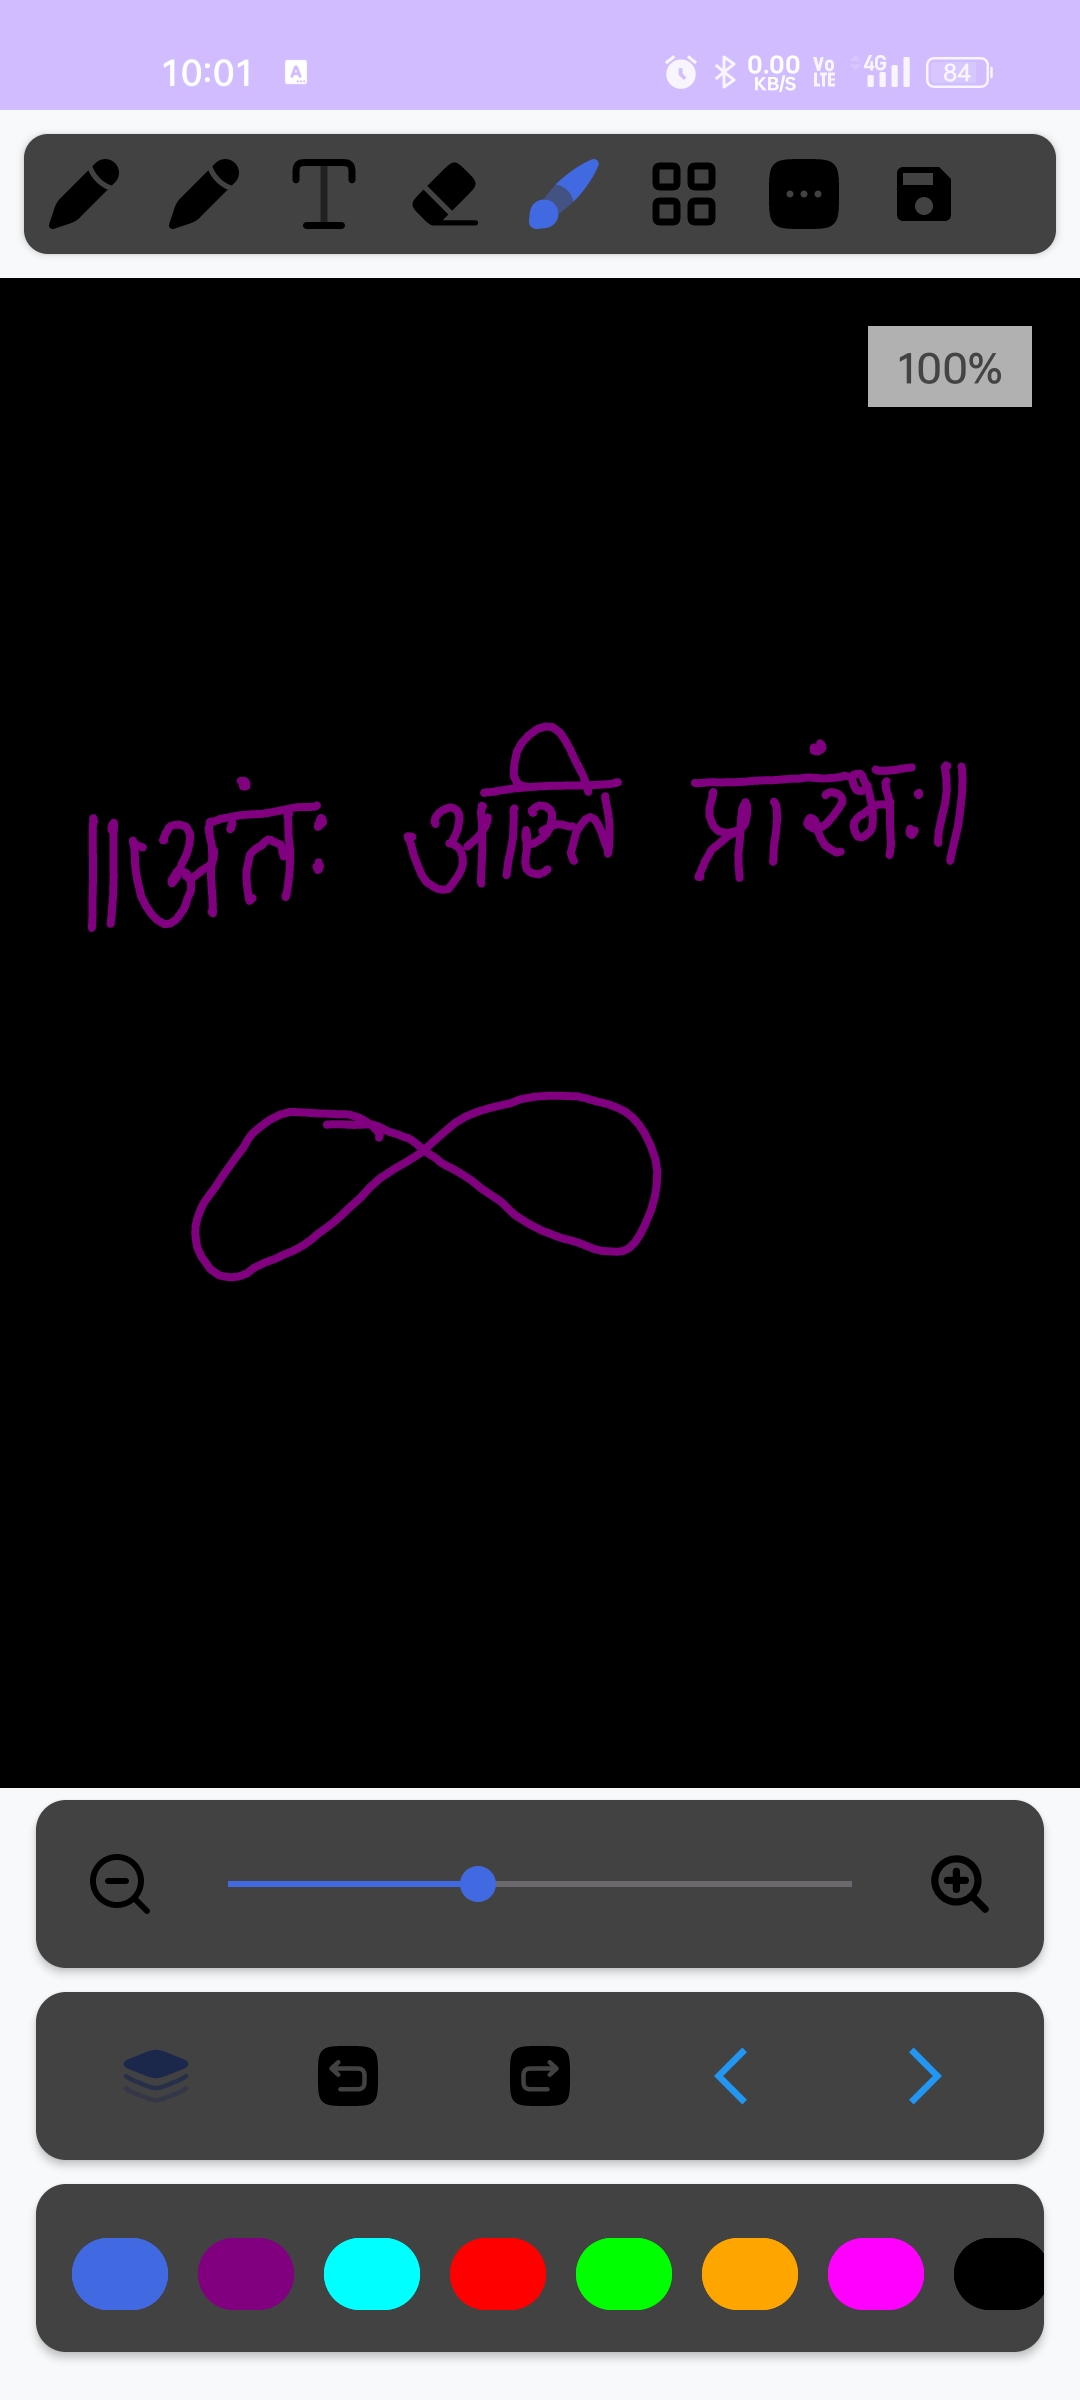 10:01 A 0.00 KB/S Vo LTE 4G 84
100%
॥अंतः अस्ति प्रारंभः॥